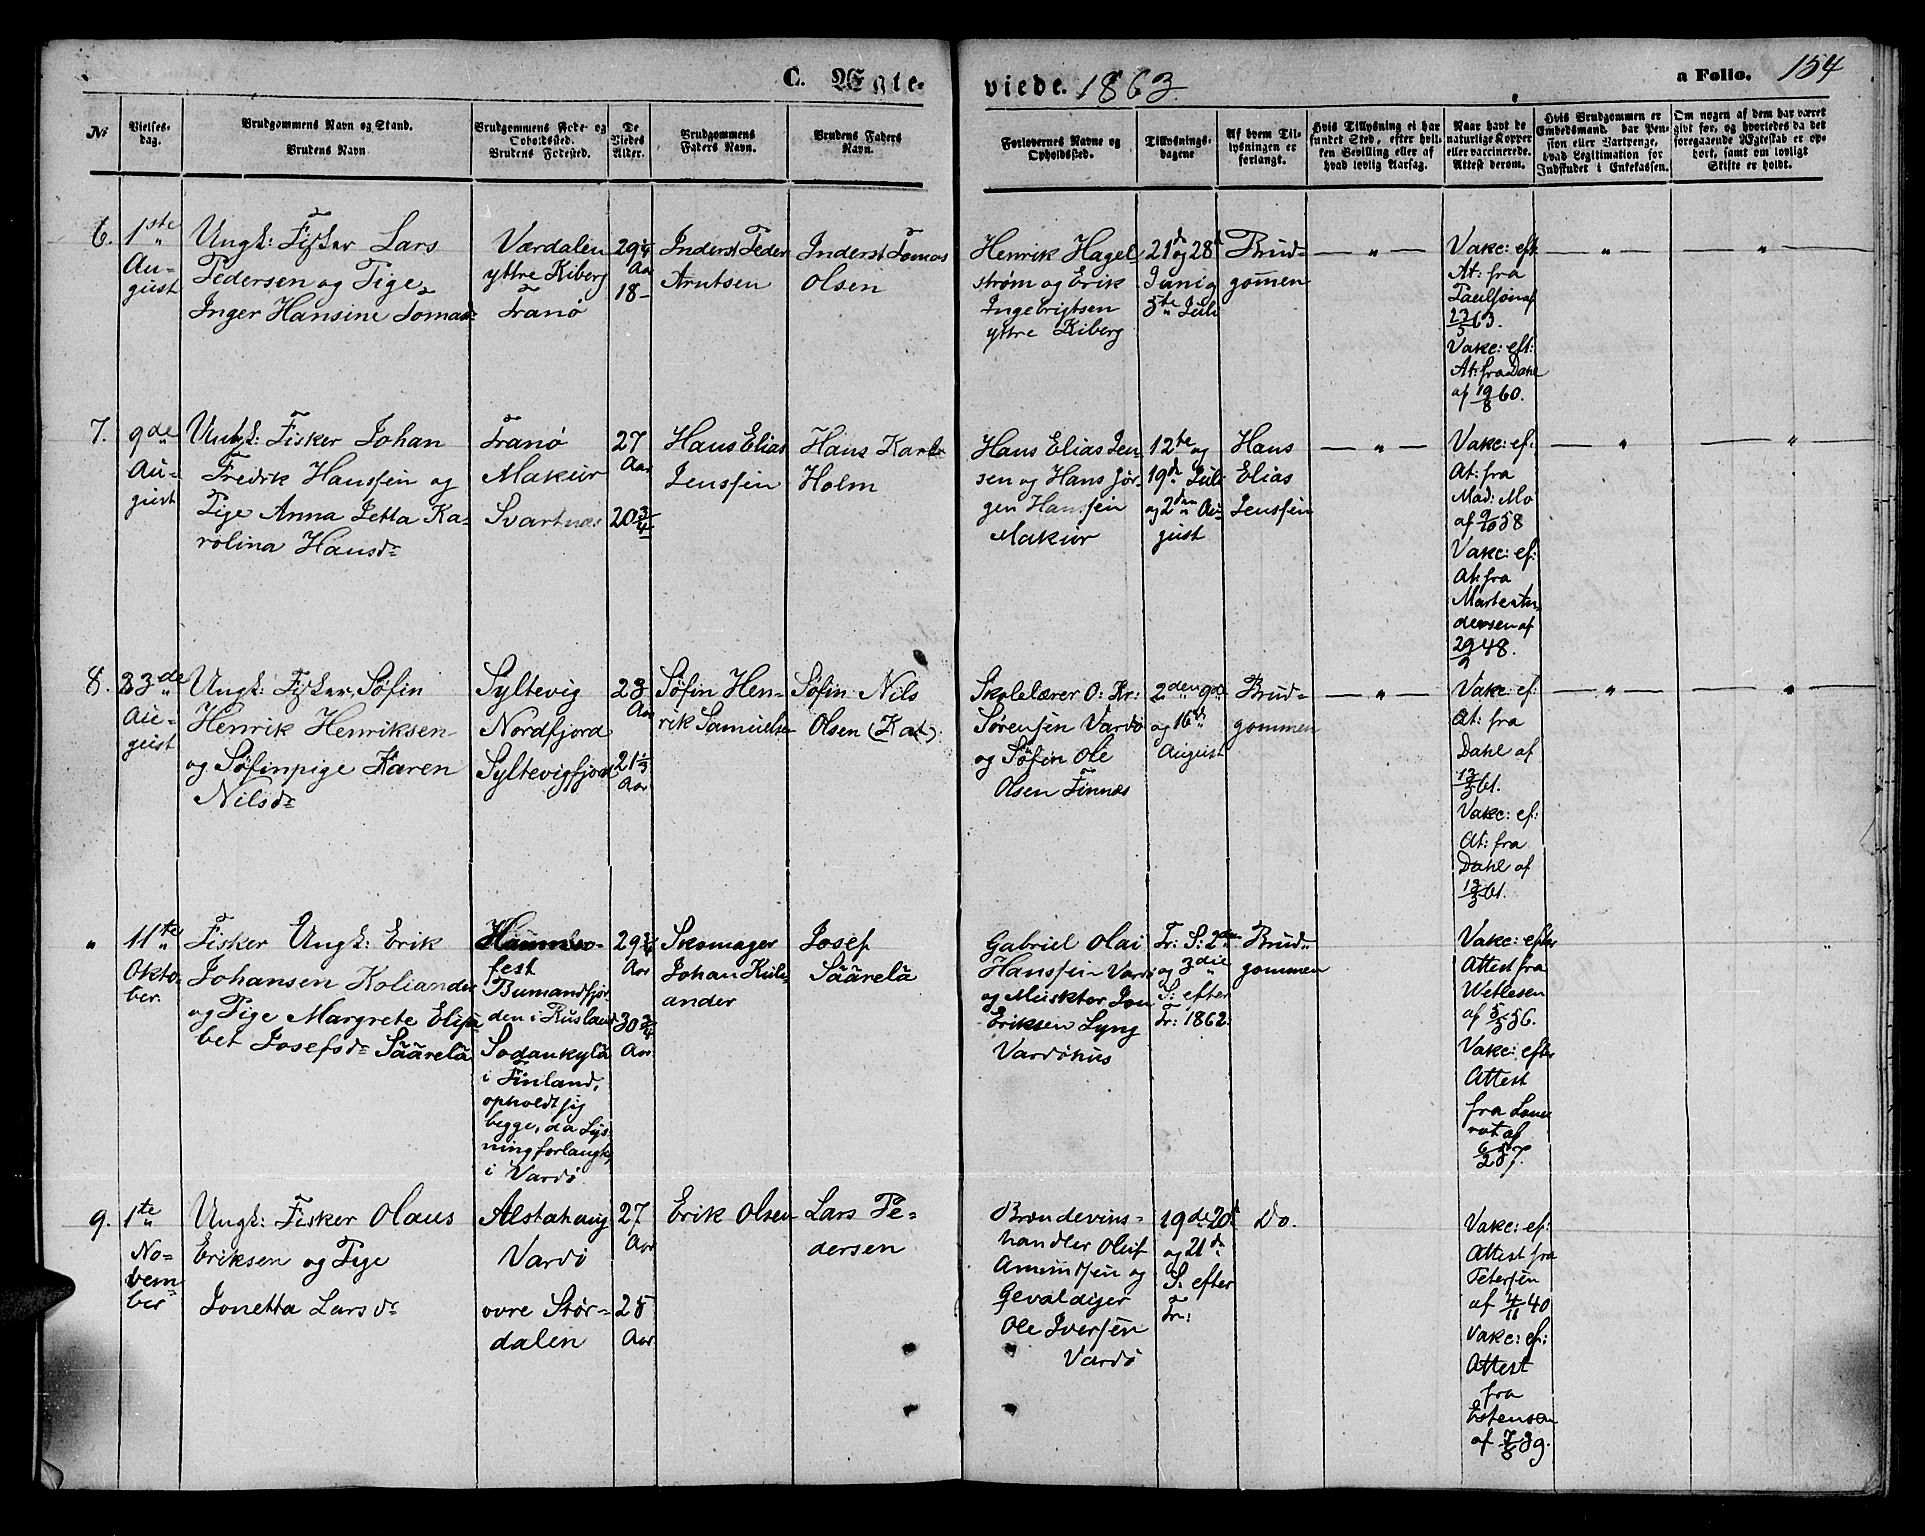 C. Ægte-
viede. 1863.
a Folio. 154
No
Vielses-
dag.
Brudgommens Navn og Stand.
Brudens Navn
Brudgommens Føde- og
Opholdssted.
Brudens Fødested.
De
Viedes
Alder.
Brudgommens
Faders Navn.
Brudens Faders
Navn.
Forlovernes Navne og
Opholdssted.
Tillysnings-
dagene
Af hvem Til-
lysningen er
forlangt.
Hvis Tillysning ei har
fundet Sted, efter hvil-
ken Bevilling eller af
hvad lovlig Aarsag.
Naar havt de
naturlige Kopper
eller vaccinerede.
Attest derom.
Hvis Brudgommen er
Embedsmand, har Pen-
sion eller Vartpenge,
hvad Legitimation for
Indskudet i Enkekassen.
Om nogen af dem har været
givt før, og hvorledes da det
foregaaende Ægteskab er op-
hørt, samt om lovligt
Skifte er holdt.
6.
1ste
Au-
gust
Ungk: Fisker Lars
Pedersen og Pige
Inger Hansine Tomasd:
Værdalen
yttre Kiberg
Tranø
29 1/4
Aar
18 -
Inderst Peder
Arntsen
Inderst Tomas
Olsen
Henrik Hagel
strøm og Erik
Ingebrigtsen
yttre Kiberg
21d og 28d
Juni og
5te Juli
Brud-
gommen
— " —
Vakc: eft.
At: fra
af
23/5 63.
Vakc: eft:
At: fra Dahl
af 19/8 60.
— " —
"
7.
9de
Au-
gust
Ungk: Fisker Johan
Fredrik Hanssen og
Pige Anna Jetta Ka-
rolina Hansdr
Tranø
Makur
Svartnæs
27
Aar
20 3/4
Hans Elias
Jenssen
Hans Karl
Holm
Hans Elias Jen-
sen og Hans Jør-
gen Hanssen
Makur
12te og
19d Juli
og 2den Au-
gust
Hans
Elias
Jenssen
— " —
Vakc: ef:
At: fra
Mad: Mo
af 9/10 58
Vakc: ef:
At: fra
Marte An-
dersen af
29/9 48.
— " —
"
8.
23de
Au-
gust
Ungk: Fisker, Søfin
Henrik Henriksen
og Søfinpige Karen
Nilsdr
Syltevig
Nordfjord
Syltevigfjord
23
Aar
21 1/3
Aar
Søfin Hen-
rik Samuelsen
Søfin Nils
Olsen (Kat)
Skolelærer O: Kr:
Sørensen Vardø
og Søfin Ole
Olsen Finnæs
2den 9de
og 16d
August
Brud-
gommen
— " —
Vakc: ef:
At: fra
Dahl af
13/3 61.
Vakc: ef:
At: fra
Dahl af
13/3 61.
— " —
"
"
11te
Okto-
ber
Fisker Ungk: Erik
Johansen Koliander
og Pige Margrete Elisa
bet Josefsdr Säärelä
Hammer-
fest
Bumandfjor
den i Rusland
Sodankylä
i Finland,
opholdt sig
begge, da Lys-
ning forlangtes,
i Vardø
29 3/4
Aar
30 3/4
Aar
Skomager
Johan Kuli
ander
Josef
Säärelä
Gabriel Olai
Hanssen Vardø
og Musktør Jon
Eriksen Lyng
Vardøhus
Tr: S: 2den
og 3die
S: efter
Tr: 1862.
Brud-
gommen
Vakc: efter
Attest fra
Wetlesen
af 5/5 56.
Vakc: efter
Attest
fra Løn
rot af
6/2 57.
9.
1te
No-
vem-
ber
Ungk: Fisker Olaus
Eriksen og Pige
Jonetta Larsdr
Alstahaug
Vardø
øvre Stør-
dalen
27
Aar
25
Aar
Erik Olsen
Lars Pe-
dersen
Brændevins-
handler Oluf
Amundsen og
Gevaldiger
Ole Iversen
Vardø
19de 20d
og 21d
S: efter
Tr:
Do.
Vakc: ef:
Attest fra
Petersen
af 4/11 40
Vakc: ef:
Attest
fra
Estensen
af 7/8 39.